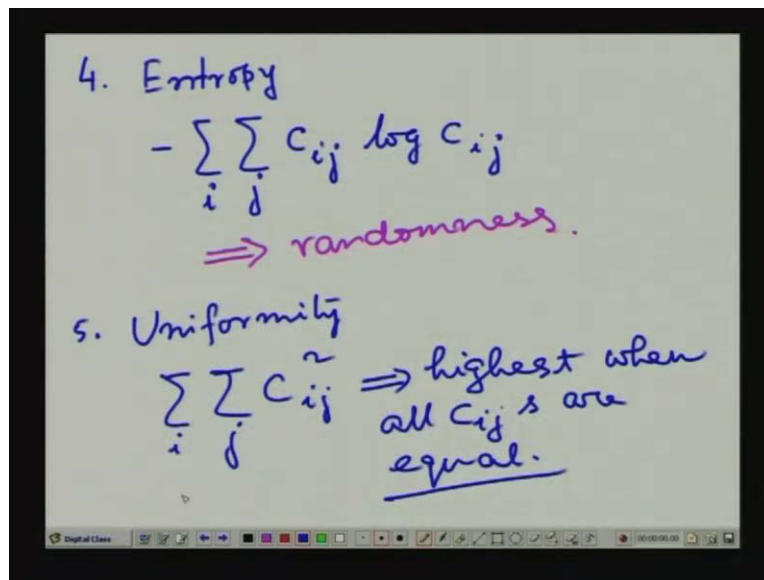 4. Entropy
- ∑ᵢ ∑ⱼ Cᵢⱼ log Cᵢⱼ
⇒ randomness.
5. Uniformity
∑ᵢ ∑ⱼ C²ᵢⱼ ⇒ highest when
all Cᵢⱼ s are
equal.
Digital Class
00:00:00.00